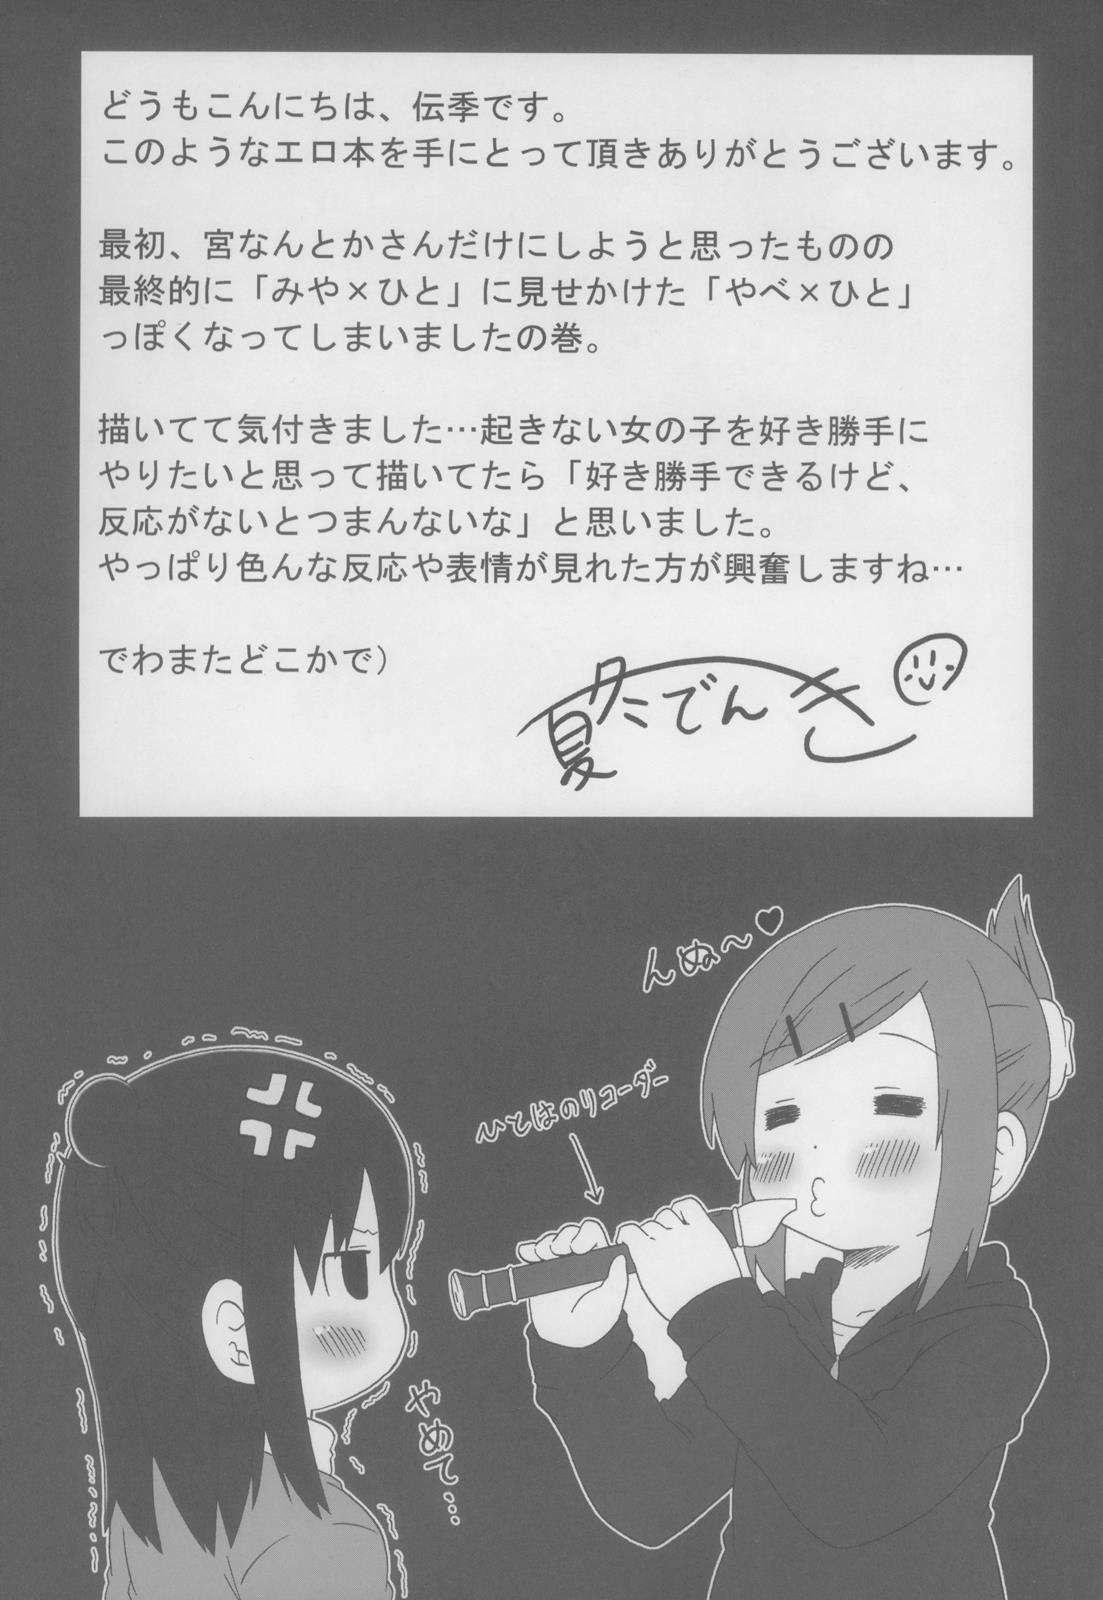 どうもこんにちは、伝季です。
このようなエロ本を手にとって頂きありがとうございます。
最初、宮なんとかさんだけにしようと思ったものの
最終的に「みや×ひと」に見せかけた「やべ×ひと」
っぽくなってしまいましたの巻。
描いてて気付きました…起きない女の子を好き勝手に
やりたいと思って描いてたら「好き勝手できるけど、
反応がないとつまんないな」と思いました。
やっぱり色んな反応や表情が見れた方が興奮しますね…
でわまたどこかで)
夏冬でんき
んぬ～♡
ひとはのリコーダー
やめて…